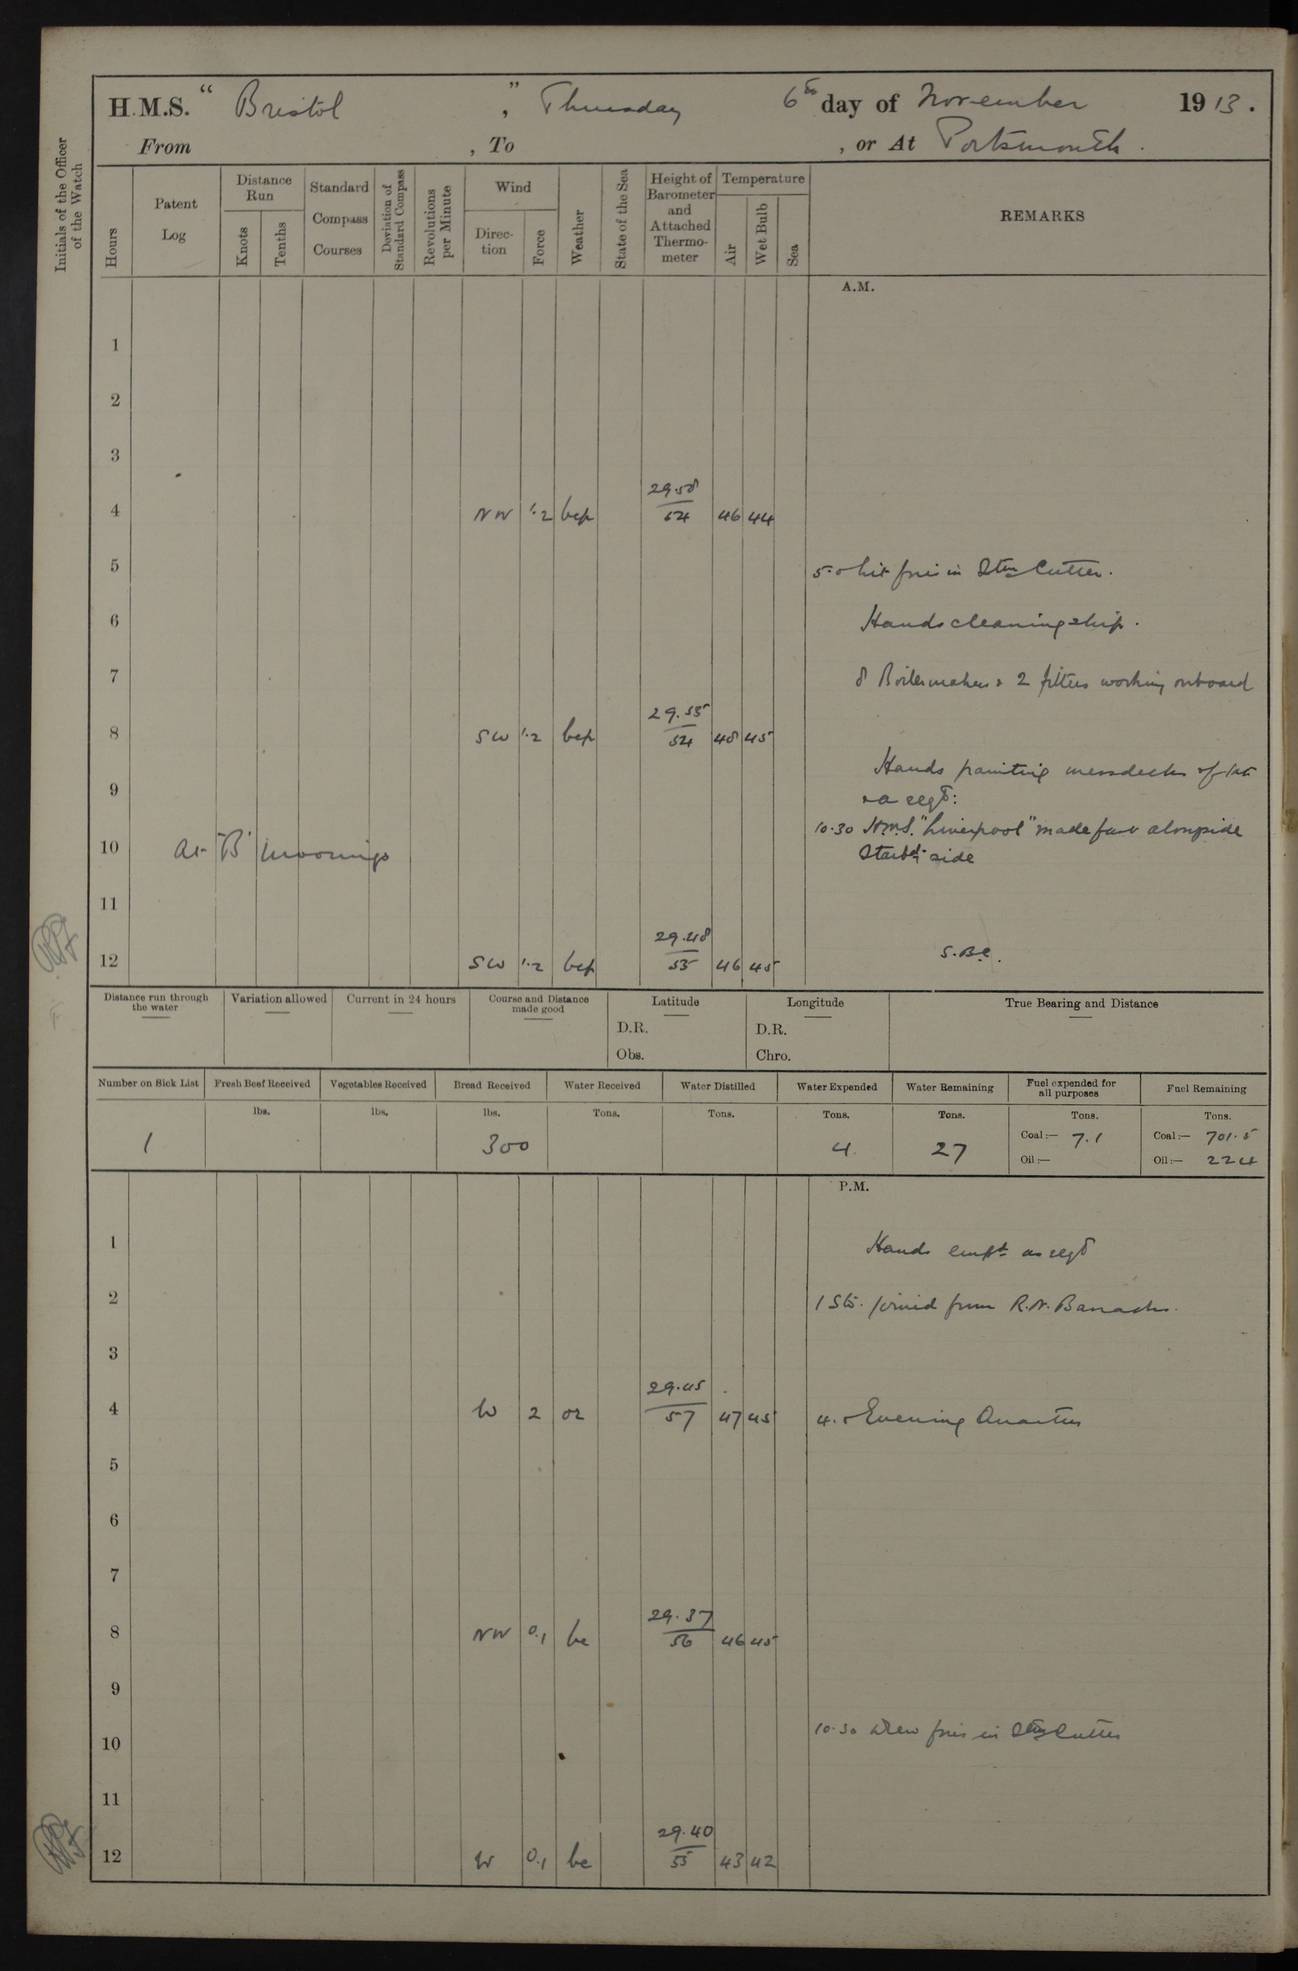 H.M.S. " Bristol ", Thursday 6th day of November 1913.
From , To , or At Portsmouth.
Initials of the Officer of the Watch
Hours
Patent Log
Distance Run
Knots
Tenths
Standard Compass Courses
Deviation of Standard Compass
Revolutions per Minute
Wind
Direction
Force
Weather
State of the Sea
Height of Barometer and Attached Thermometer
Temperature
Air
Wet Bulb
Sea
REMARKS
A.M.
1
2
3
29.58
4 NW 1.2 bcp 54 46 44
5 5.0 Lit fires in Stm Cutter.
6 Hands cleaning ship.
7 8 Boilermakers & 2 fitters working onboard
29.55
8 SW 1.2 bcp 54 48 45
Hands painting messdecks &
9 as reqd:
10.30 H.M.S. "Liverpool" made fast alongside
10 At "B" Moorings Starbd side
11
29.48
12 SW 1.2 bcp 55 46 45
Distance run through the water
Variation allowed
Current in 24 hours
Course and Distance made good
Latitude
D.R.
Obs.
Longitude
D.R.
Chro.
True Bearing and Distance
Number on Sick List Fresh Beef Received Vegetables Received Bread Received Water Received Water Distilled Water Expended Water Remaining Fuel expended for all purposes Fuel Remaining
lbs. lbs. lbs. Tons. Tons. Tons. Tons. Tons. Tons.
1 300 4 27 Coal:— 7.1 Coal:— 701.5
Oil:— Oil:— 224
P.M.
1 Hands empd as reqd
2 1 Sto. joined from R.N. Barracks.
3
29.45
4 W 2 or 57 47 45 4.0 Evening Quarters
5
6
7
29.37
8 NW 0.1 bc 56 46 45
9
10 10.30 Drew fires in Stm Cutter
11
29.40
12 W 0.1 bc 55 43 42